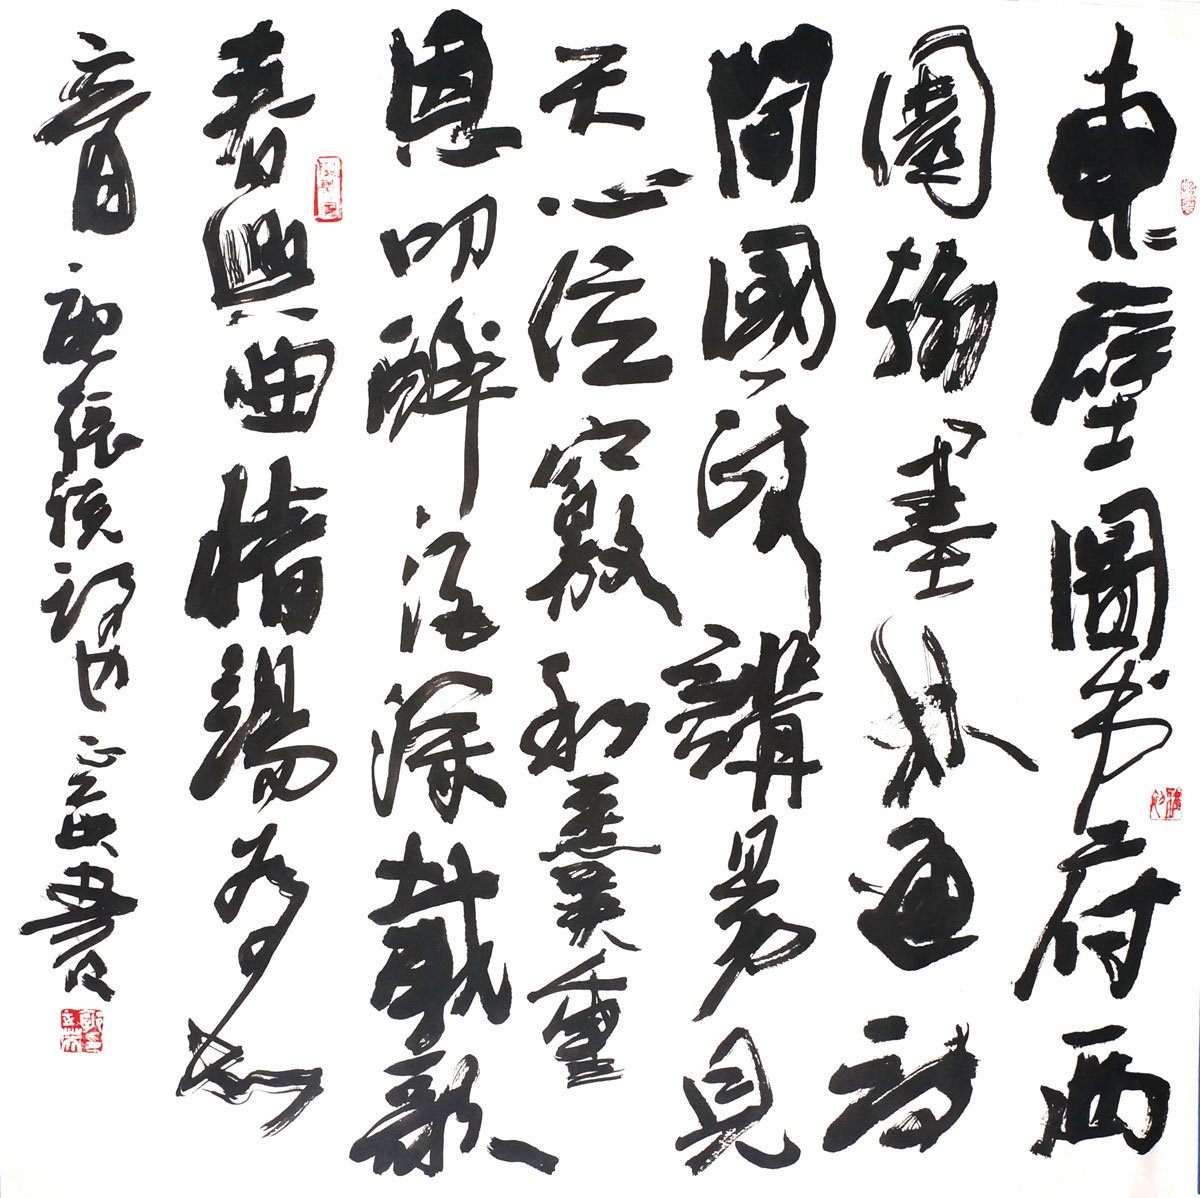 東壁圖书府西
園翰墨林通詩
聞國政講易見
天心位竅和羹重
恩叨醉酒深載歌
春興曲情竭為知
音 張說詩也 書